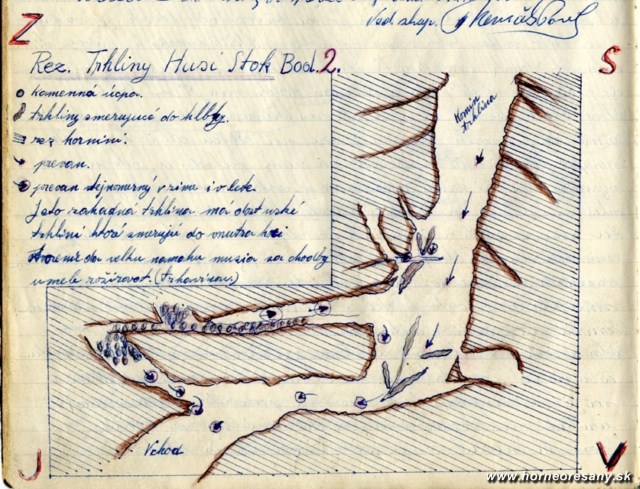 Ved. skup.
Z
S
Rez. Trhliny Husí Stok Bod.2.
kamenná úcpa.
trhliny smerujúce do hlbky.
rez hornini.
prevan.
prevan stejnomerný v zime i v lete.
Jeto záhadná trhlina má dost uské
trhlini ktoré smerujú do vnutra
velku namahu musia sa chodby
umele rožširovat.
Komín
trhlina
Vchod
J
V
www.horneoresany.sk